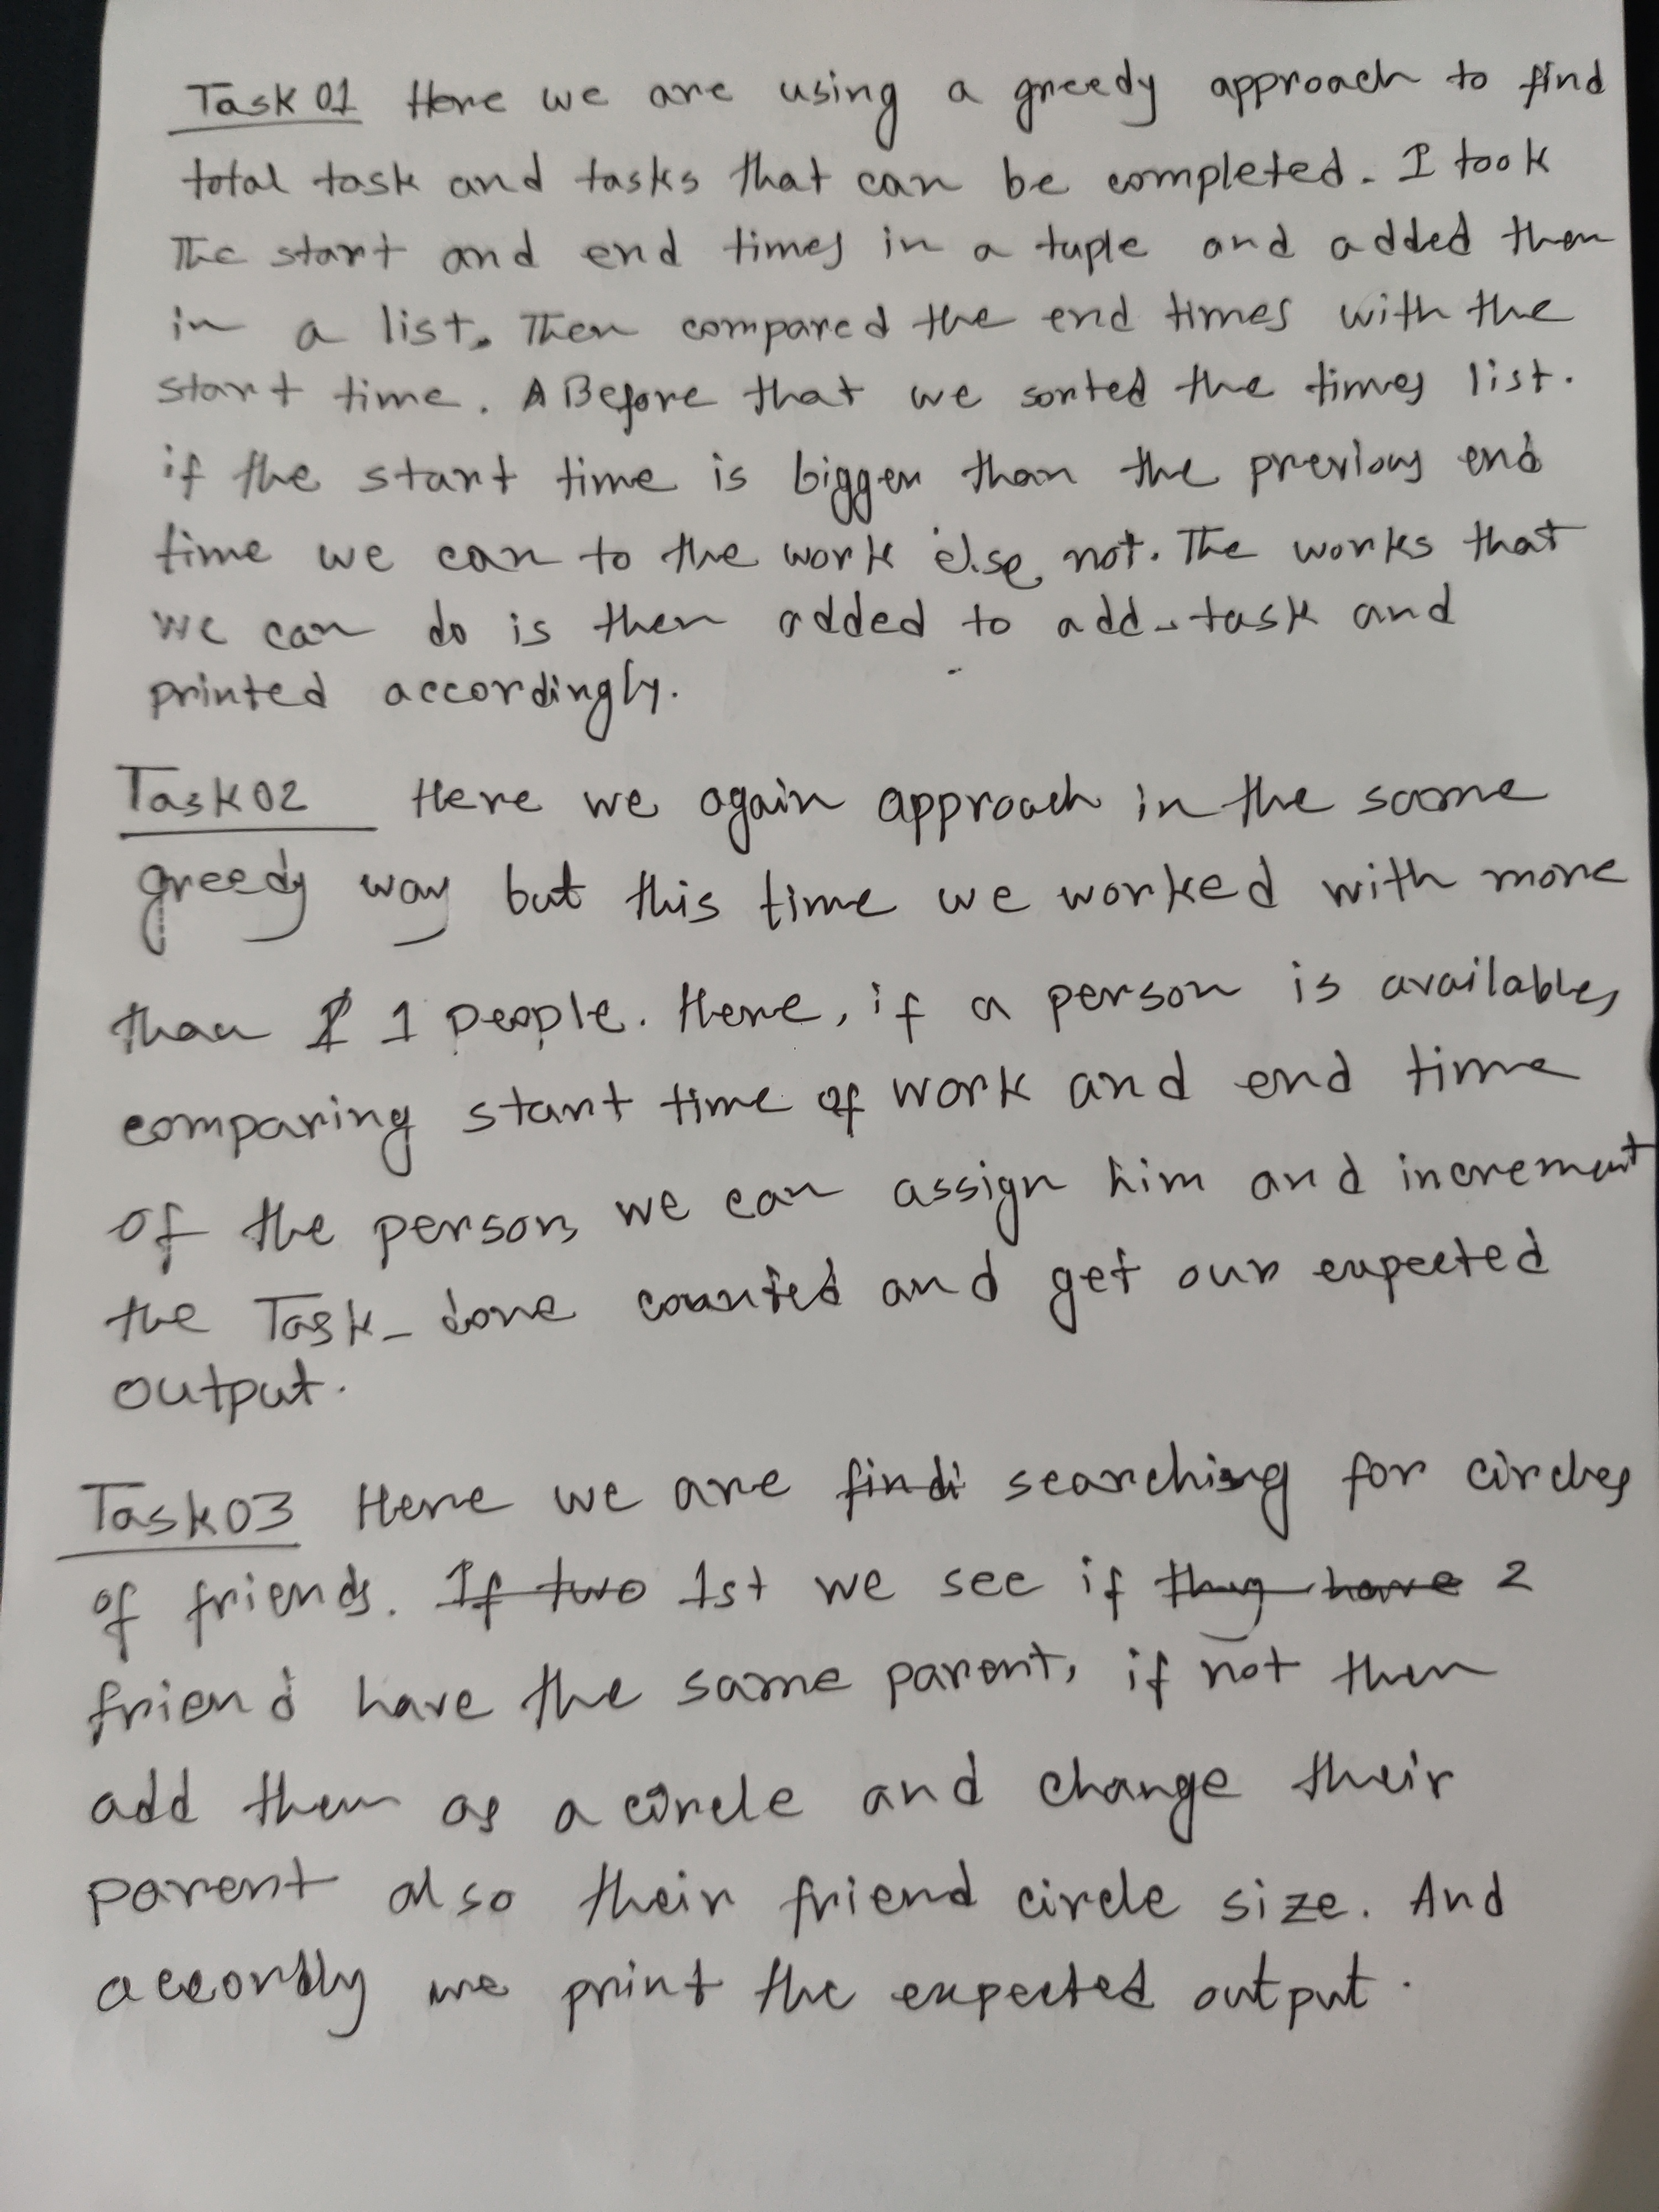 Task 01 Here we are using a greedy approach to find
total task and tasks that can be completed. I took
The start and end times in a tuple and added them
in a list. Then compared the end times with the
start time. A Before that we sorted the times list.
if the start time is bigger than the previous end
time we can to the work else not. The works that
we can do is then added to add_task and
printed accordingly.
Task 02 Here we again approach in the same
greedy way but this time we worked with more
than 1 people. Here, if a person is available,
comparing start time of work and end time
of the person, we can assign him and increment
the Task_done counted and get our expected
output.
Task 03 Here we are findi searching for circles
of friends. If two 1st we see if they have 2
friend have the same parent, if not then
add them as a circle and change their
parent also their friend circle size. And
accordly we print the expected output.